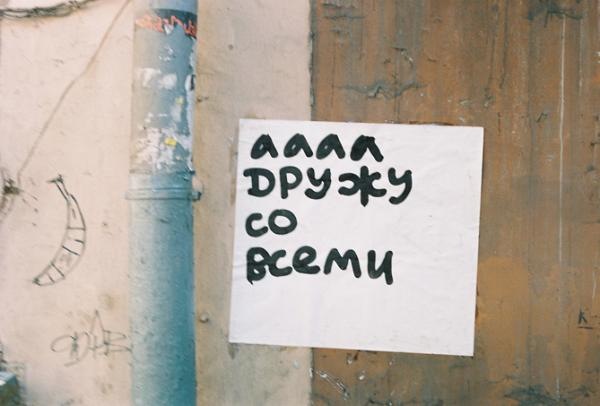 аааа
DРУЖУ
СО
ВСЕМИ
K